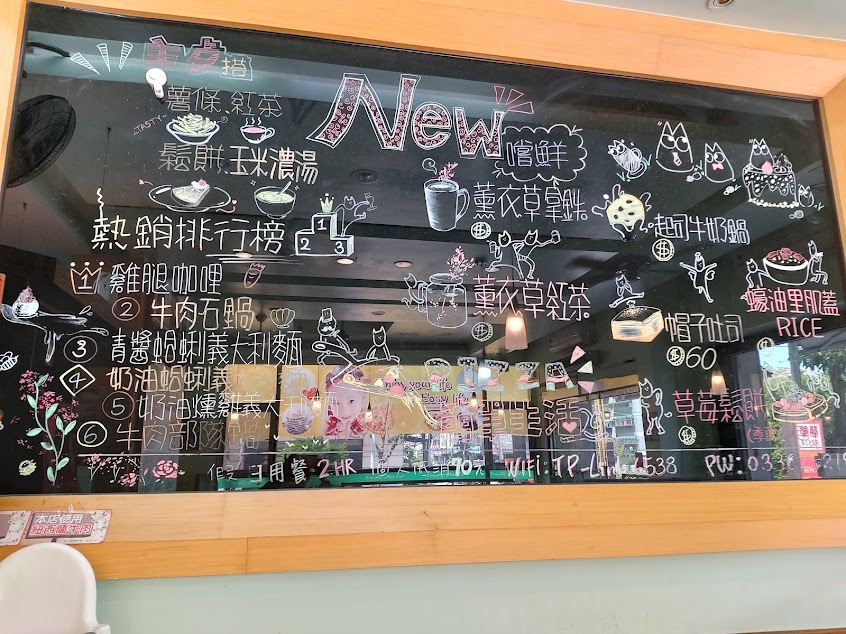 搭
薯條 紅茶
TASTY
鬆餅 玉米濃湯
New
嚐鮮
熱銷排行榜
1 2 3
1 雞腿咖哩
2 牛肉石鍋
3 青醬蛤蜊義大利麵
4 奶油蛤蜊義
5 奶油燻雞義大利麵
6 牛肉部隊鍋
薰衣草拿鉄
$
薰衣草紅茶
$
起司牛奶鍋
$
帽子吐司
$60
蠔油里肌蓋
RICE
草莓鬆餅
$
(季
PIZZA
Enjoy your life
Easy life
生活
假日用餐 2HR 個人低銷90元 WiFi: TP-Link 6538 PW: 033
本店使用
紐西蘭牛肉